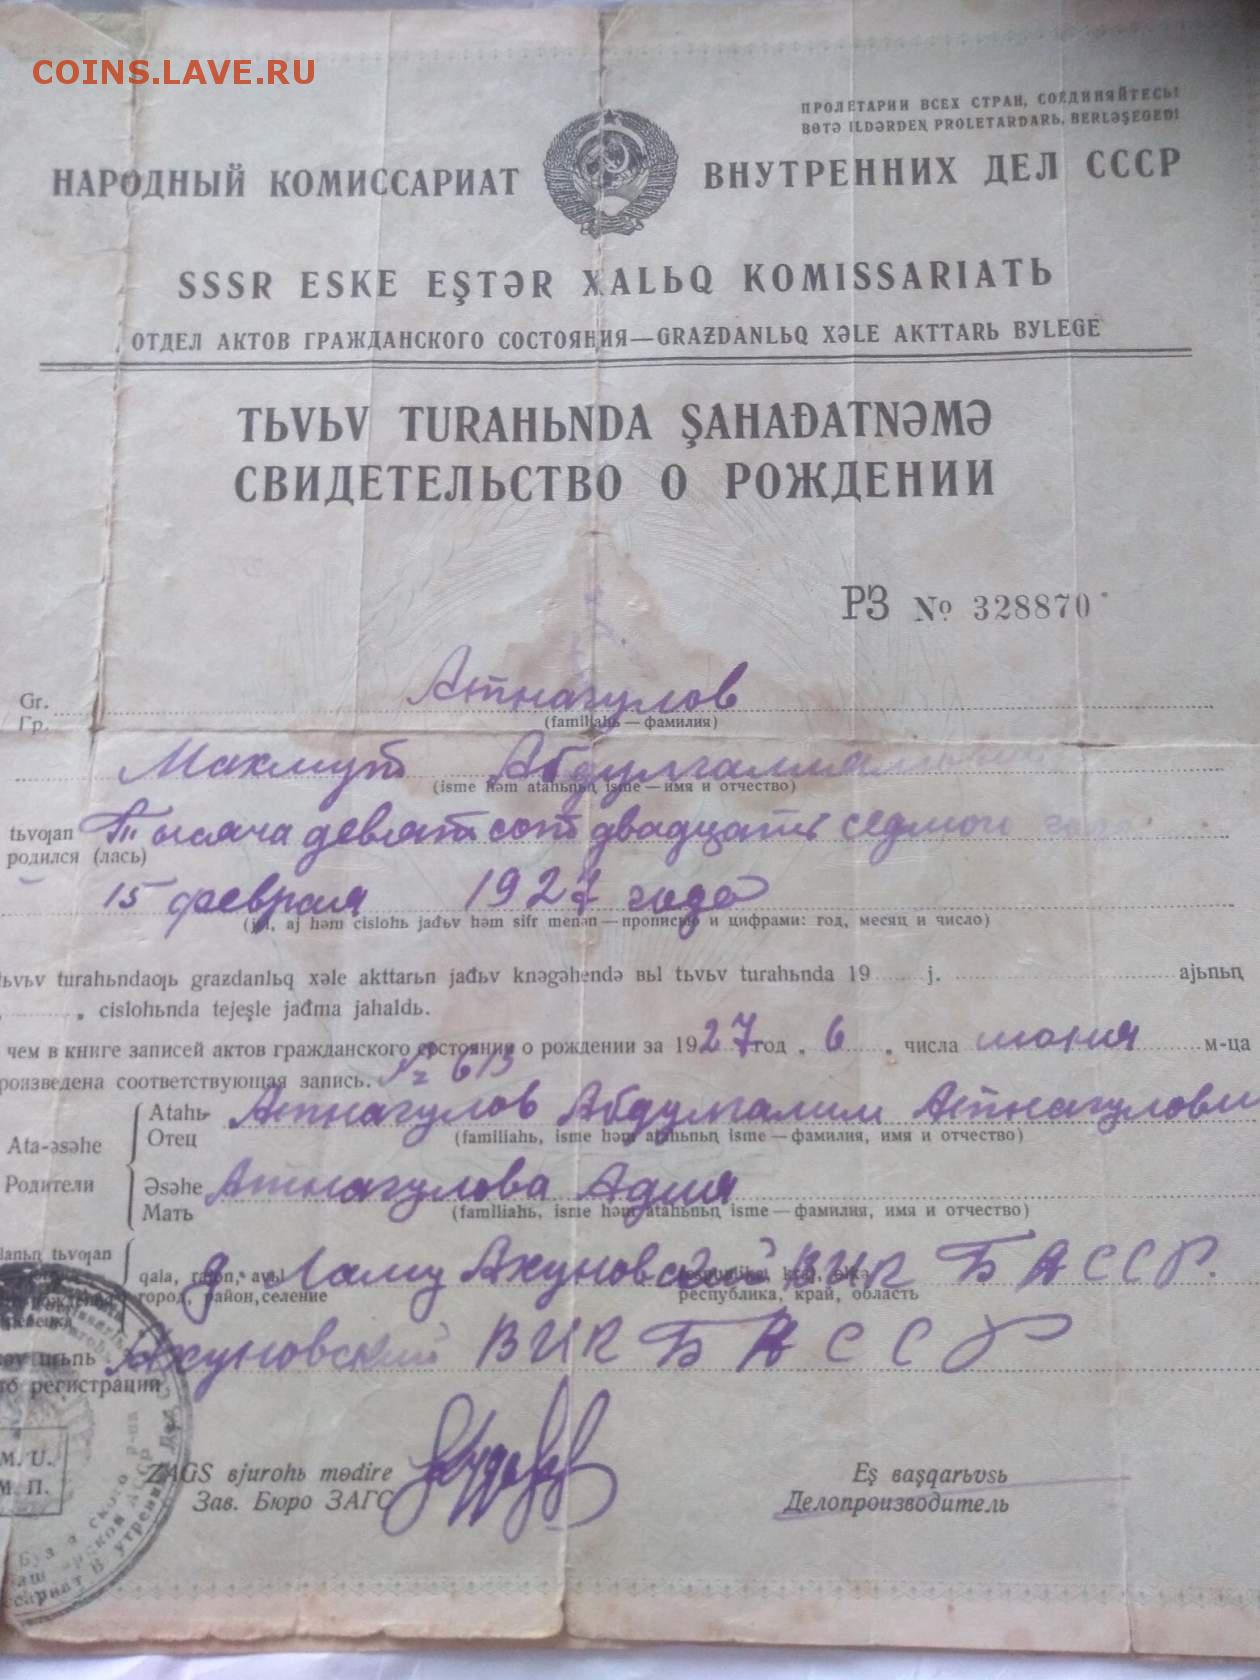 COINS.LAVE.RU
ПРОЛЕТАРИИ ВСЕХ СТРАН, СОЕДИНЯЙТЕСЬ!
BƟTƏ ILDƏRDEŅ PROLETARDARЬ, BERLƏŞEGEĐ!
НАРОДНЫЙ КОМИССАРИАТ ВНУТРЕННИХ ДЕЛ СССР
SSSR ESKE EŞTƏR XALЬQ KOMISSARIATЬ
ОТДЕЛ АКТОВ ГРАЖДАНСКОГО СОСТОЯНИЯ—GRAƵDANLЬQ XƏLE AKTTARЬ BYLEGE
TЬVЬV TURAHЬNDA ŞAHAĐATNƏMƏ
СВИДЕТЕЛЬСТВО О РОЖДЕНИИ
РЗ № 328870
Gr. Атнагулов
Гр. (familiahь — фамилия)
Махмут
(isme həm atahьnьꞑ isme — имя и отчество)
tьvƣan Тысяча девятсот двадцать седмого года
родился (лась)
15 февраля 1927 года
aj həm cislohь jađьv həm sifr menən — прописью и цифрами: год, месяц и число)
turahьndaƣь grazdanlьq xəle akttarьn jađьv knəgəhendə вьl tьvьv turahьnda 19 j. ajьnьꞑ
cislohьnda tejeşle jađma jahaldь.
чем в книге записей актов гражданского состояния о рождении за 1927 год, 6 числа июния м-ца
соответствующая запись. № 613
Atahь Атнагулов Абдулгалим
Ata-əsəhe Отец (familiahь, isme həm atahьnьꞑ isme — фамилия, имя и отчество)
Родители Əsəhe Атнагулова Адия
Мать (familiahь, isme həm atahьnьꞑ isme — фамилия, имя и отчество)
tьvƣan
qala, rajon, avьl д. Ахуновский ВИК БАССР.
город, район, селение республика, край, область
Ахуновский ВИК БАССР
регистрации
M. U. ZAGS вjurohь mөdire Eş вaşqarьvsь
М. П. Зав. Бюро ЗАГС Делопроизводитель